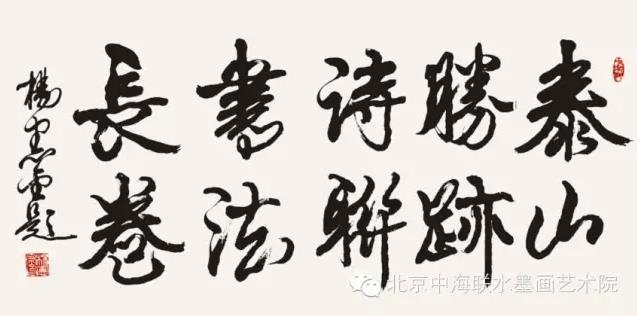 泰山
勝跡
诗聯
書法
長卷
楊憲金题
北京中海联水墨画艺术院